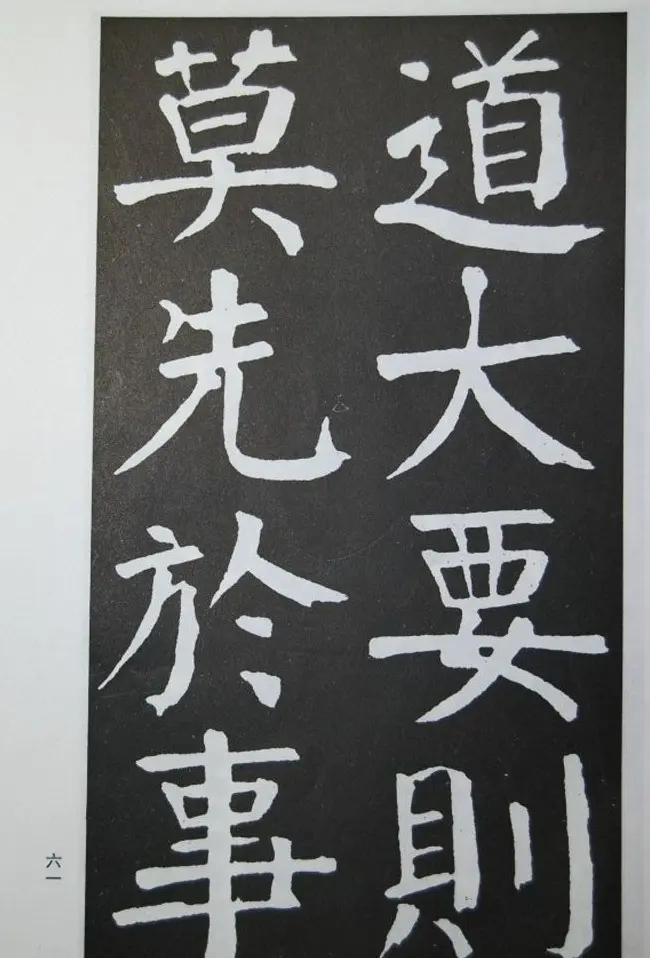 道大要則
莫先於事
六一